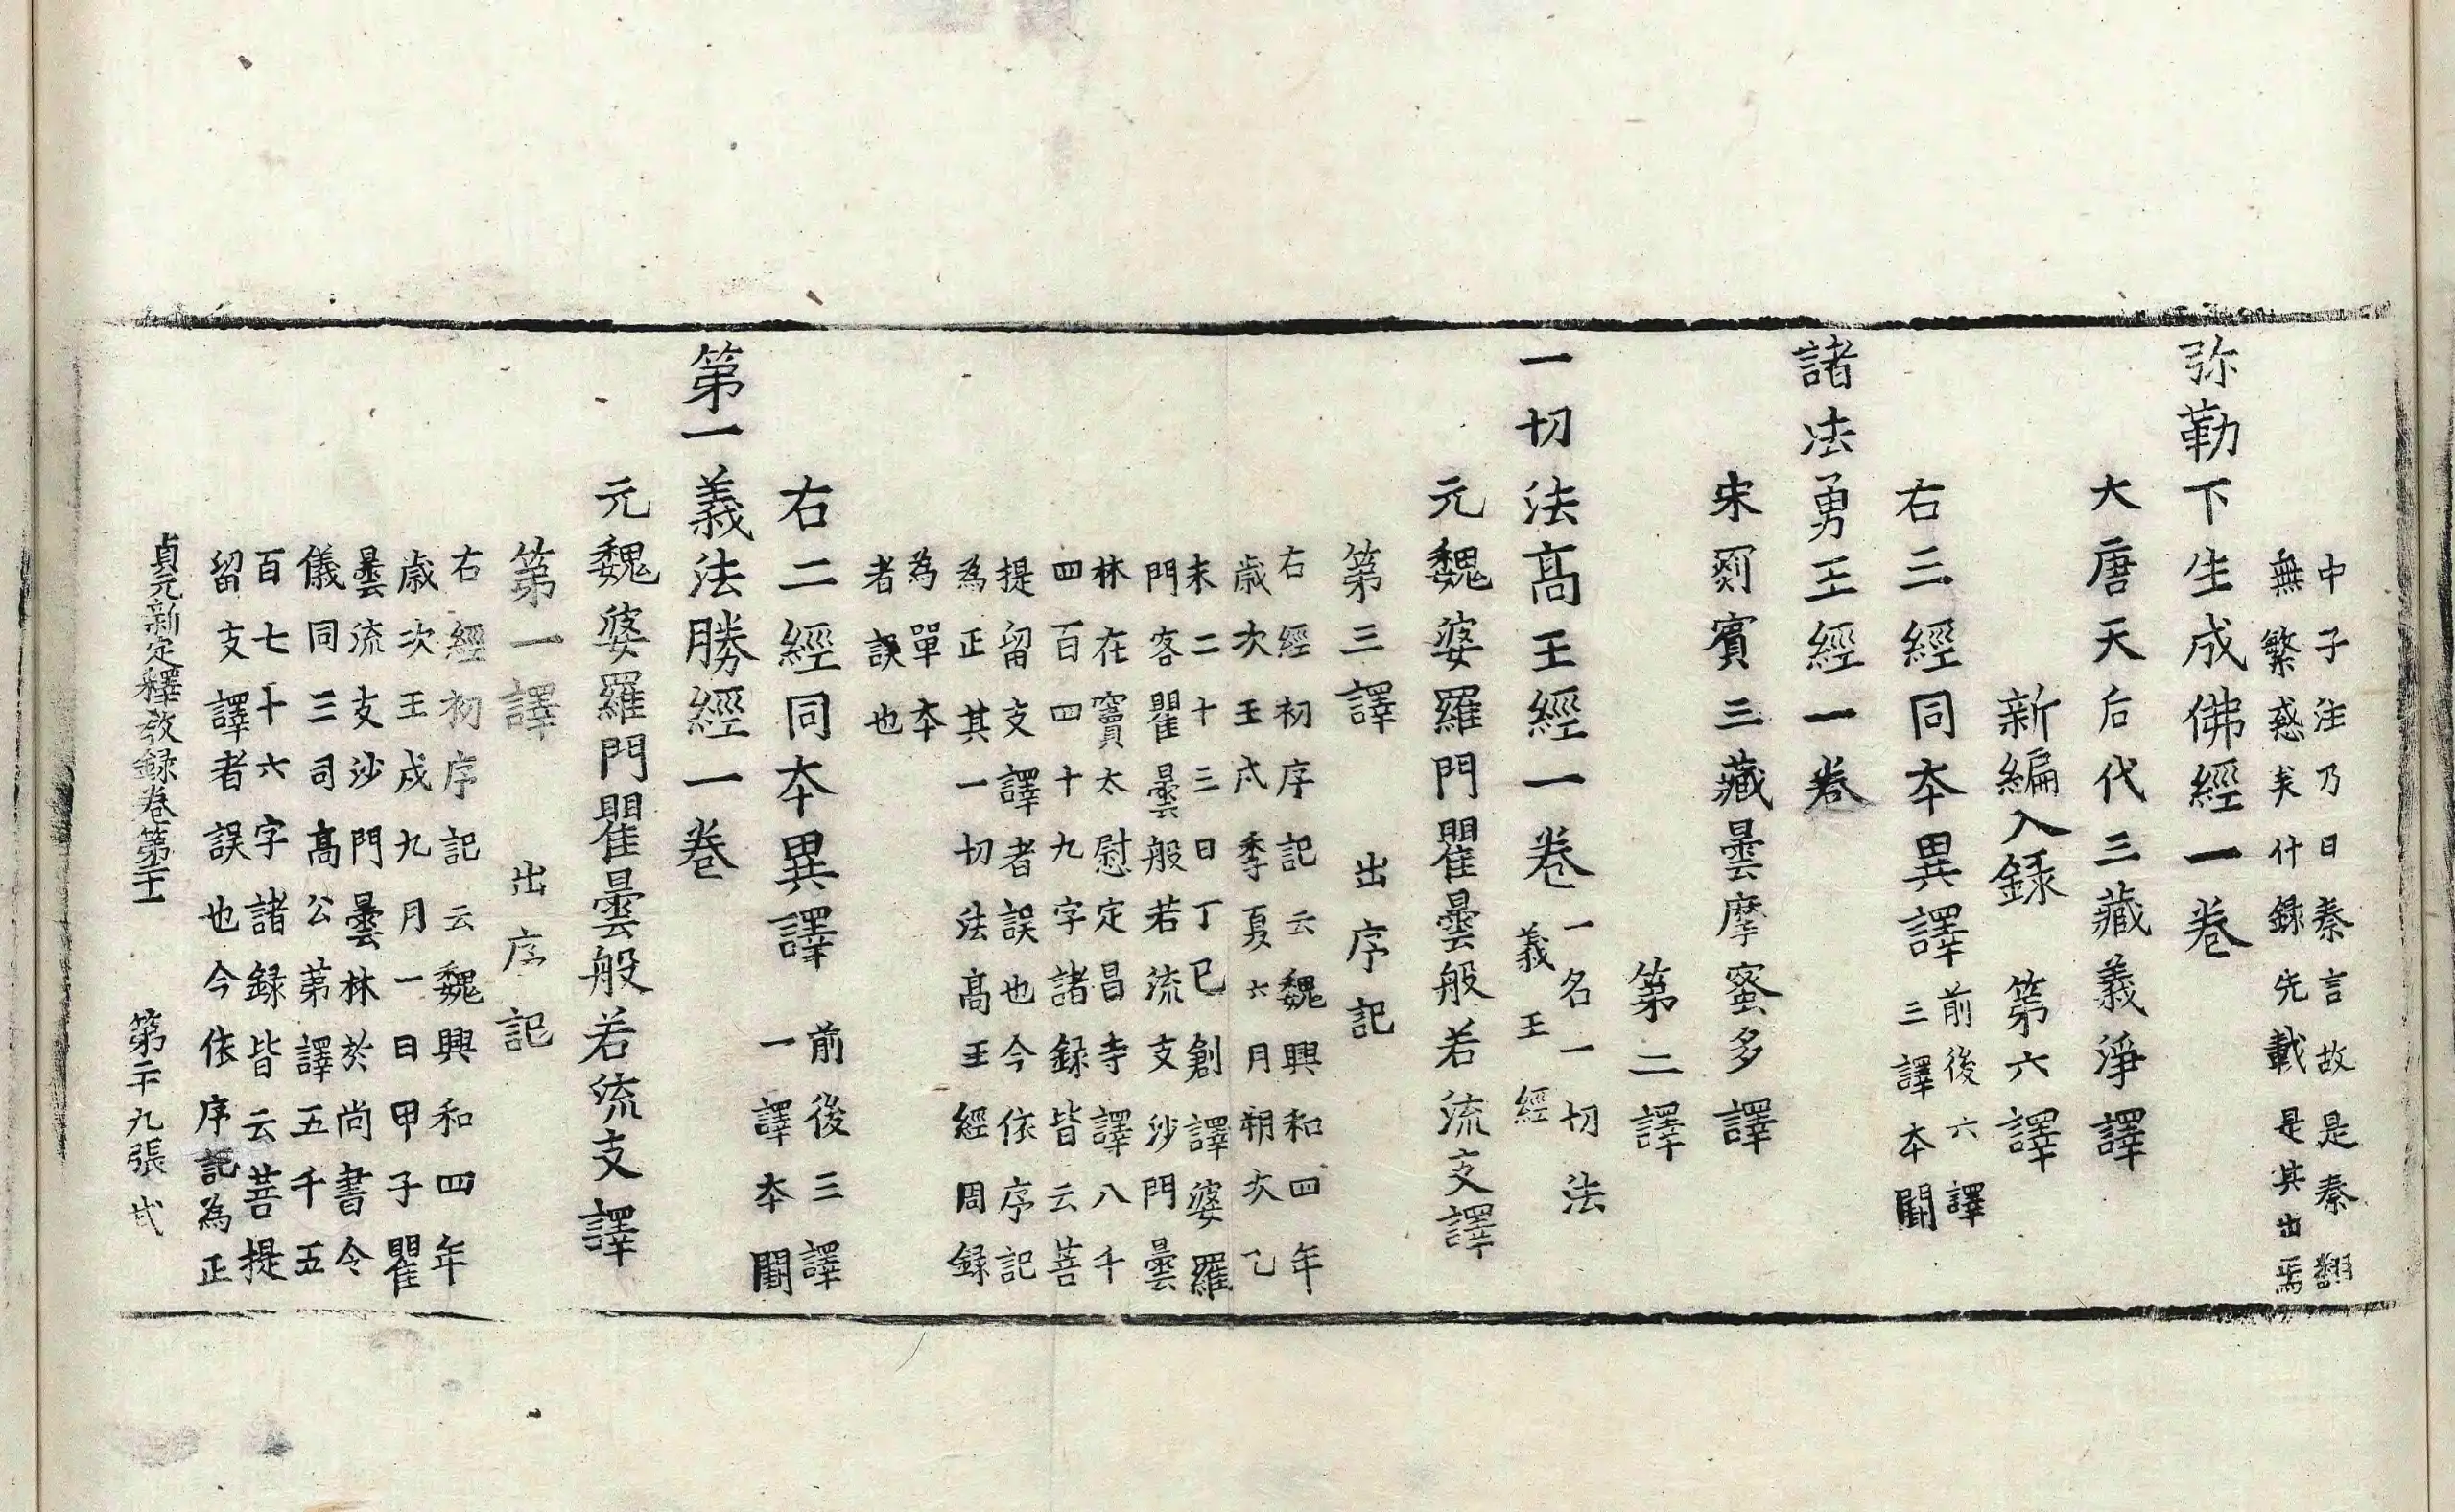 中子注乃曰秦言故是秦翻
無繁惑矣什録先載是其出焉
弥勒下生成佛經一卷
大唐天后代三藏義淨譯
新編入録 第六譯
右三經同本異譯 前後六譯
三譯本闕
諸法勇王經一卷
宋罽賓三藏曇摩蜜多譯
第二譯
一切法高王經一卷 一名一切法
義王經
元魏婆羅門瞿曇般若流支譯
第三譯 出序記
右經初序記云魏興和四年
歲次壬戌季夏六月朔次乙
未二十三日丁巳創譯婆羅
門客瞿曇般若流支沙門曇
林在竇太尉定昌寺譯八千
四百四十九字諸録皆云菩
提留支譯者誤也今依序記
為正其一切法高王經周録
為單本
者誤也
右二經同本異譯 前後三譯
一譯本闕
第一義法勝經一卷
元魏婆羅門瞿曇般若流支譯
第一譯 出序記
右經初序記云魏興和四年
歲次壬戌九月一日甲子瞿
曇流支沙門曇林於尚書令
儀同三司高公第譯五千五
百七十六字諸録皆云菩提
留支譯者誤也今依序記為正
貞元新定釋教録卷第二十一 第二十九張